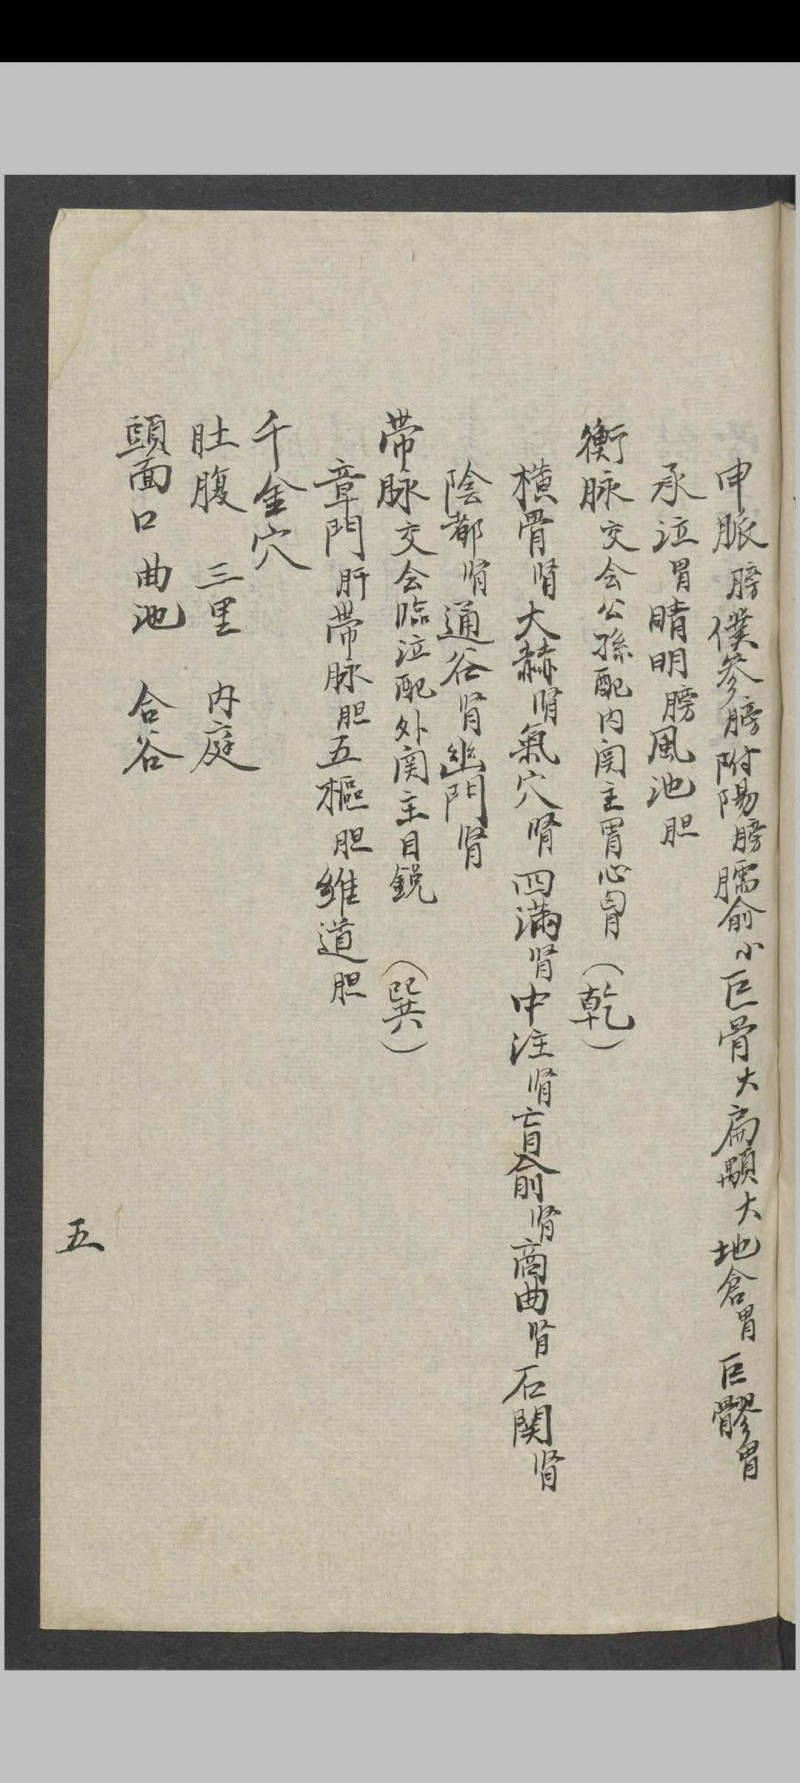 申脈膀僕參膀附陽膀臑俞小巨骨大扁顒大地倉胃巨髎胃
承泣胃睛明膀風池胆
衡脉交会公孫配内関主胃心胃（乾）
橫骨肾大赫肾氣穴肾四満肾中注肾肓俞肾商曲肾石関肾
陰都肾通谷肾幽門肾
帶脉交会臨泣配外関主目鋭（巽）
章門肝帶脉胆五樞胆維道胆
千金穴
肚腹 三里 内庭
頭面口 曲池 合谷
五